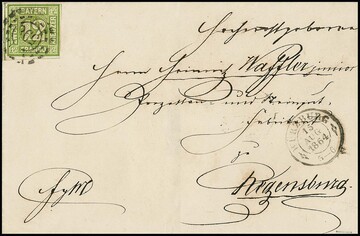 BAYERN
12
Hochwohlgeboren
Herrn Heinrich Waffler junior
Porzellan und Steingut
Fabrikant
zu
Regensburg
15
AUG
1864